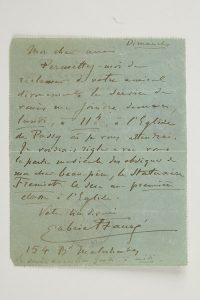 Dimanche
Mon cher ami
Permettez-moi de
réclamer de votre amical
dévouement le service de
venir me joindre demain,
lundi, à 11h, à l'Eglise
de Passy où je vous attendrai.
Je voudrais régler avec vous
la partie musicale des obsèques de
mon cher beau-père, le Statuaire
Fremiet. Ce sera en première
classe à l'Eglise.
Votre
Gabriel Fauré
154 Bd Malesherbes